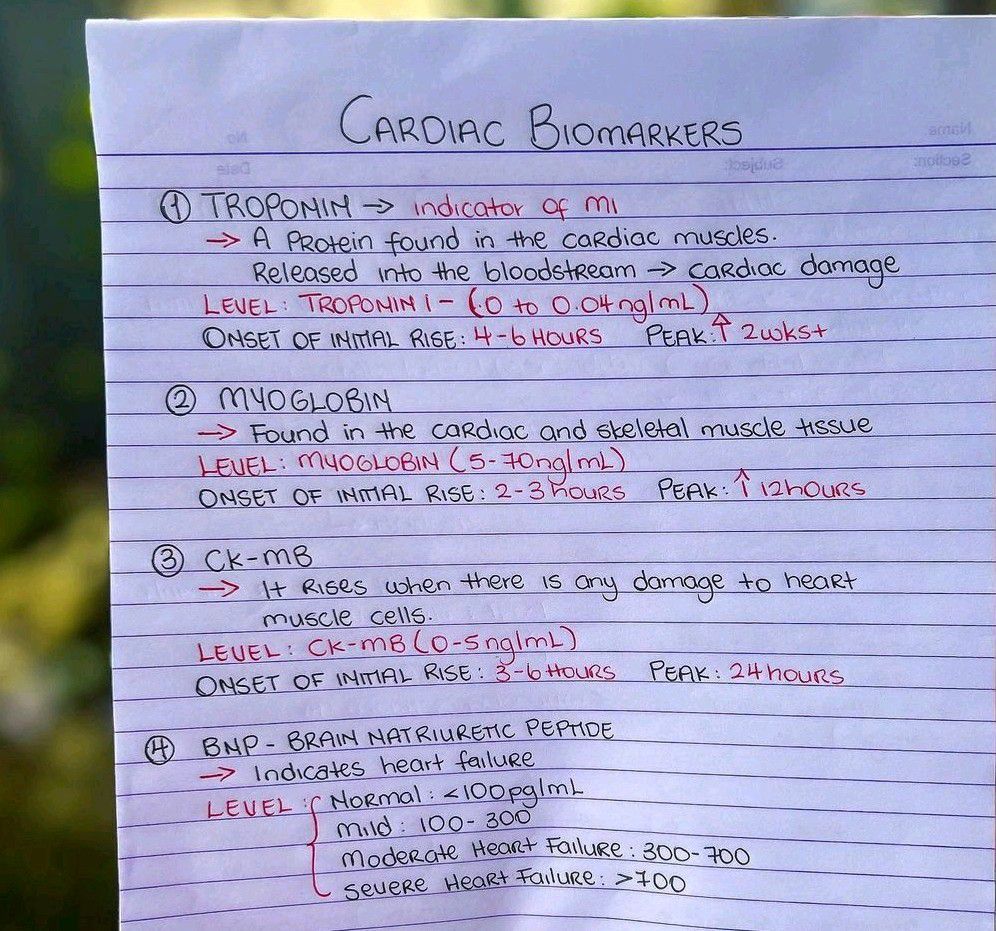 CARDIAC BIOMARKERS
No
Name
Date
Subject:
Section:
① TROPONIN → indicator of MI
→ A Protein found in the cardiac muscles.
Released into the bloodstream → cardiac damage
LEVEL: TROPONIN I - (.0 to 0.04ng/mL)
ONSET OF INITIAL RISE: 4-6 HOURS PEAK:↑ 2wks+
② MYOGLOBIN
→ Found in the cardiac and skeletal muscle tissue
LEVEL: MYOGLOBIN (5-70ng/mL)
ONSET OF INITIAL RISE: 2-3 hours PEAK: ↑ 12hours
③ CK-MB
→ It Rises when there is any damage to heart
muscle cells.
LEVEL: CK-MB (0-5ng/mL)
ONSET OF INITIAL RISE: 3-6 Hours PEAK: 24 hours
④ BNP - BRAIN NATRIURETIC PEPTIDE
→ Indicates heart failure
LEVEL: { Normal: <100pg/mL
Mild: 100-300
Moderate Heart Failure: 300-700
Severe Heart Failure: >700